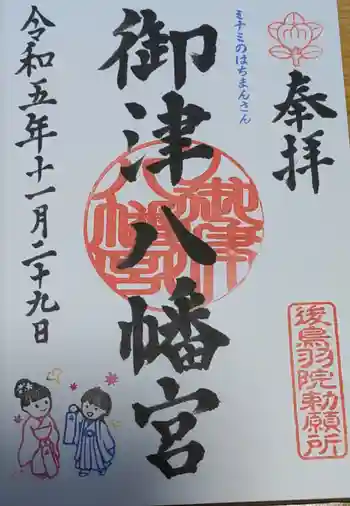 奉拝
ミナミのはちまんさん
御津八幡宮
御津八幡宮
後鳥羽院勅願所
令和五年十一月二十九日